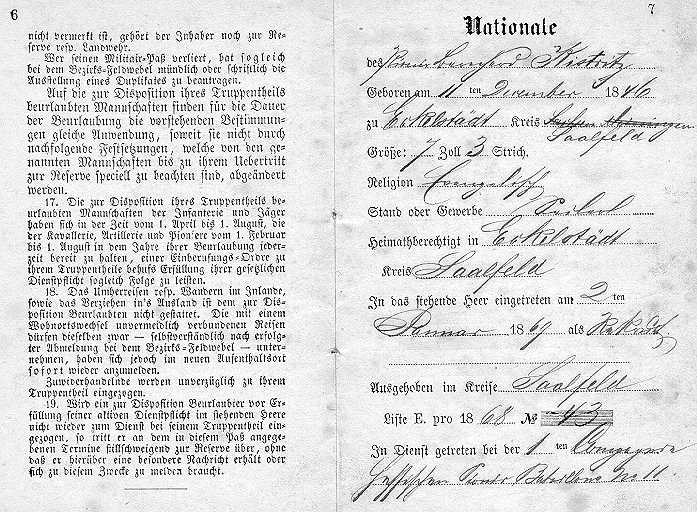 6
nicht vermerkt ist, gehört der Inhaber noch zur Re-
serve resp. Landwehr.
Wer seinen Militair-Paß verliert, hat sogleich
bei dem Bezirks-Feldwebel mündlich oder schriftlich die
Ausstellung eines Duplikates zu beantragen.
Auf die zur Disposition ihres Truppentheils
beurlaubten Mannschaften finden für die Dauer
der Beurlaubung die vorstehenden Bestimmun-
gen gleiche Anwendung, soweit sie nicht durch
nachfolgende Festsetzungen, welche von den ge-
nannten Mannschaften bis zu ihrem Uebertritt
zur Reserve speciell zu beachten sind, abgeändert
werden.
17. Die zur Disposition ihres Truppentheils be-
urlaubten Mannschaften der Infanterie und Jäger
haben sich in der Zeit vom 1. April bis 1. August, die
der Kavallerie, Artillerie und Pioniere vom 1. Februar
bis 1. August in dem Jahre ihrer Beurlaubung jeder-
zeit bereit zu halten, einer Einberufungs-Ordre zu
ihrem Truppentheile behufs Erfüllung ihrer gesetzlichen
Dienstpflicht sogleich Folge zu leisten.
18. Das Umherreisen resp. Wandern im Inlande,
sowie das Verziehen in's Ausland ist dem zur Dis-
position Beurlaubten nicht gestattet. Die mit einem
Wohnortswechsel unvermeidlich verbundenen Reisen
dürfen dieselben zwar — selbstverständlich nach erfolg-
ter Abmeldung bei dem Bezirks-Feldwebel — unter-
nehmen, haben sich jedoch im neuen Aufenthaltsort
sofort wieder anzumelden.
Zuwiderhandelnde werden unverzüglich zu ihrem
Truppentheil eingezogen.
19. Wird ein zur Disposition Beurlaubter vor Er-
füllung seiner aktiven Dienstpflicht im stehenden Heere
nicht wieder zum Dienst bei seinem Truppentheil ein-
gezogen, so tritt er an dem in diesem Paß angege-
benen Termine stillschweigend zur Reserve über, ohne
daß er hierüber eine besondere Nachricht erhält oder
sich zu diesem Zwecke zu melden braucht.
7
Nationale
des
Geboren am 11 ten December 1846
zu Eckelstädt Kreis
Saalfeld
Größe: 7 Zoll 3 Strich.
Religion
Stand oder Gewerbe
Heimathberechtigt in Eckelstädt
Kreis Saalfeld
In das stehende Heer eingetreten am 2 ten
Januar 1869 als Rekrut
Ausgehoben im Kreise Saalfeld
Liste E. pro 1868 № 43
In Dienst getreten bei der 1 ten Compagnie
No 11.